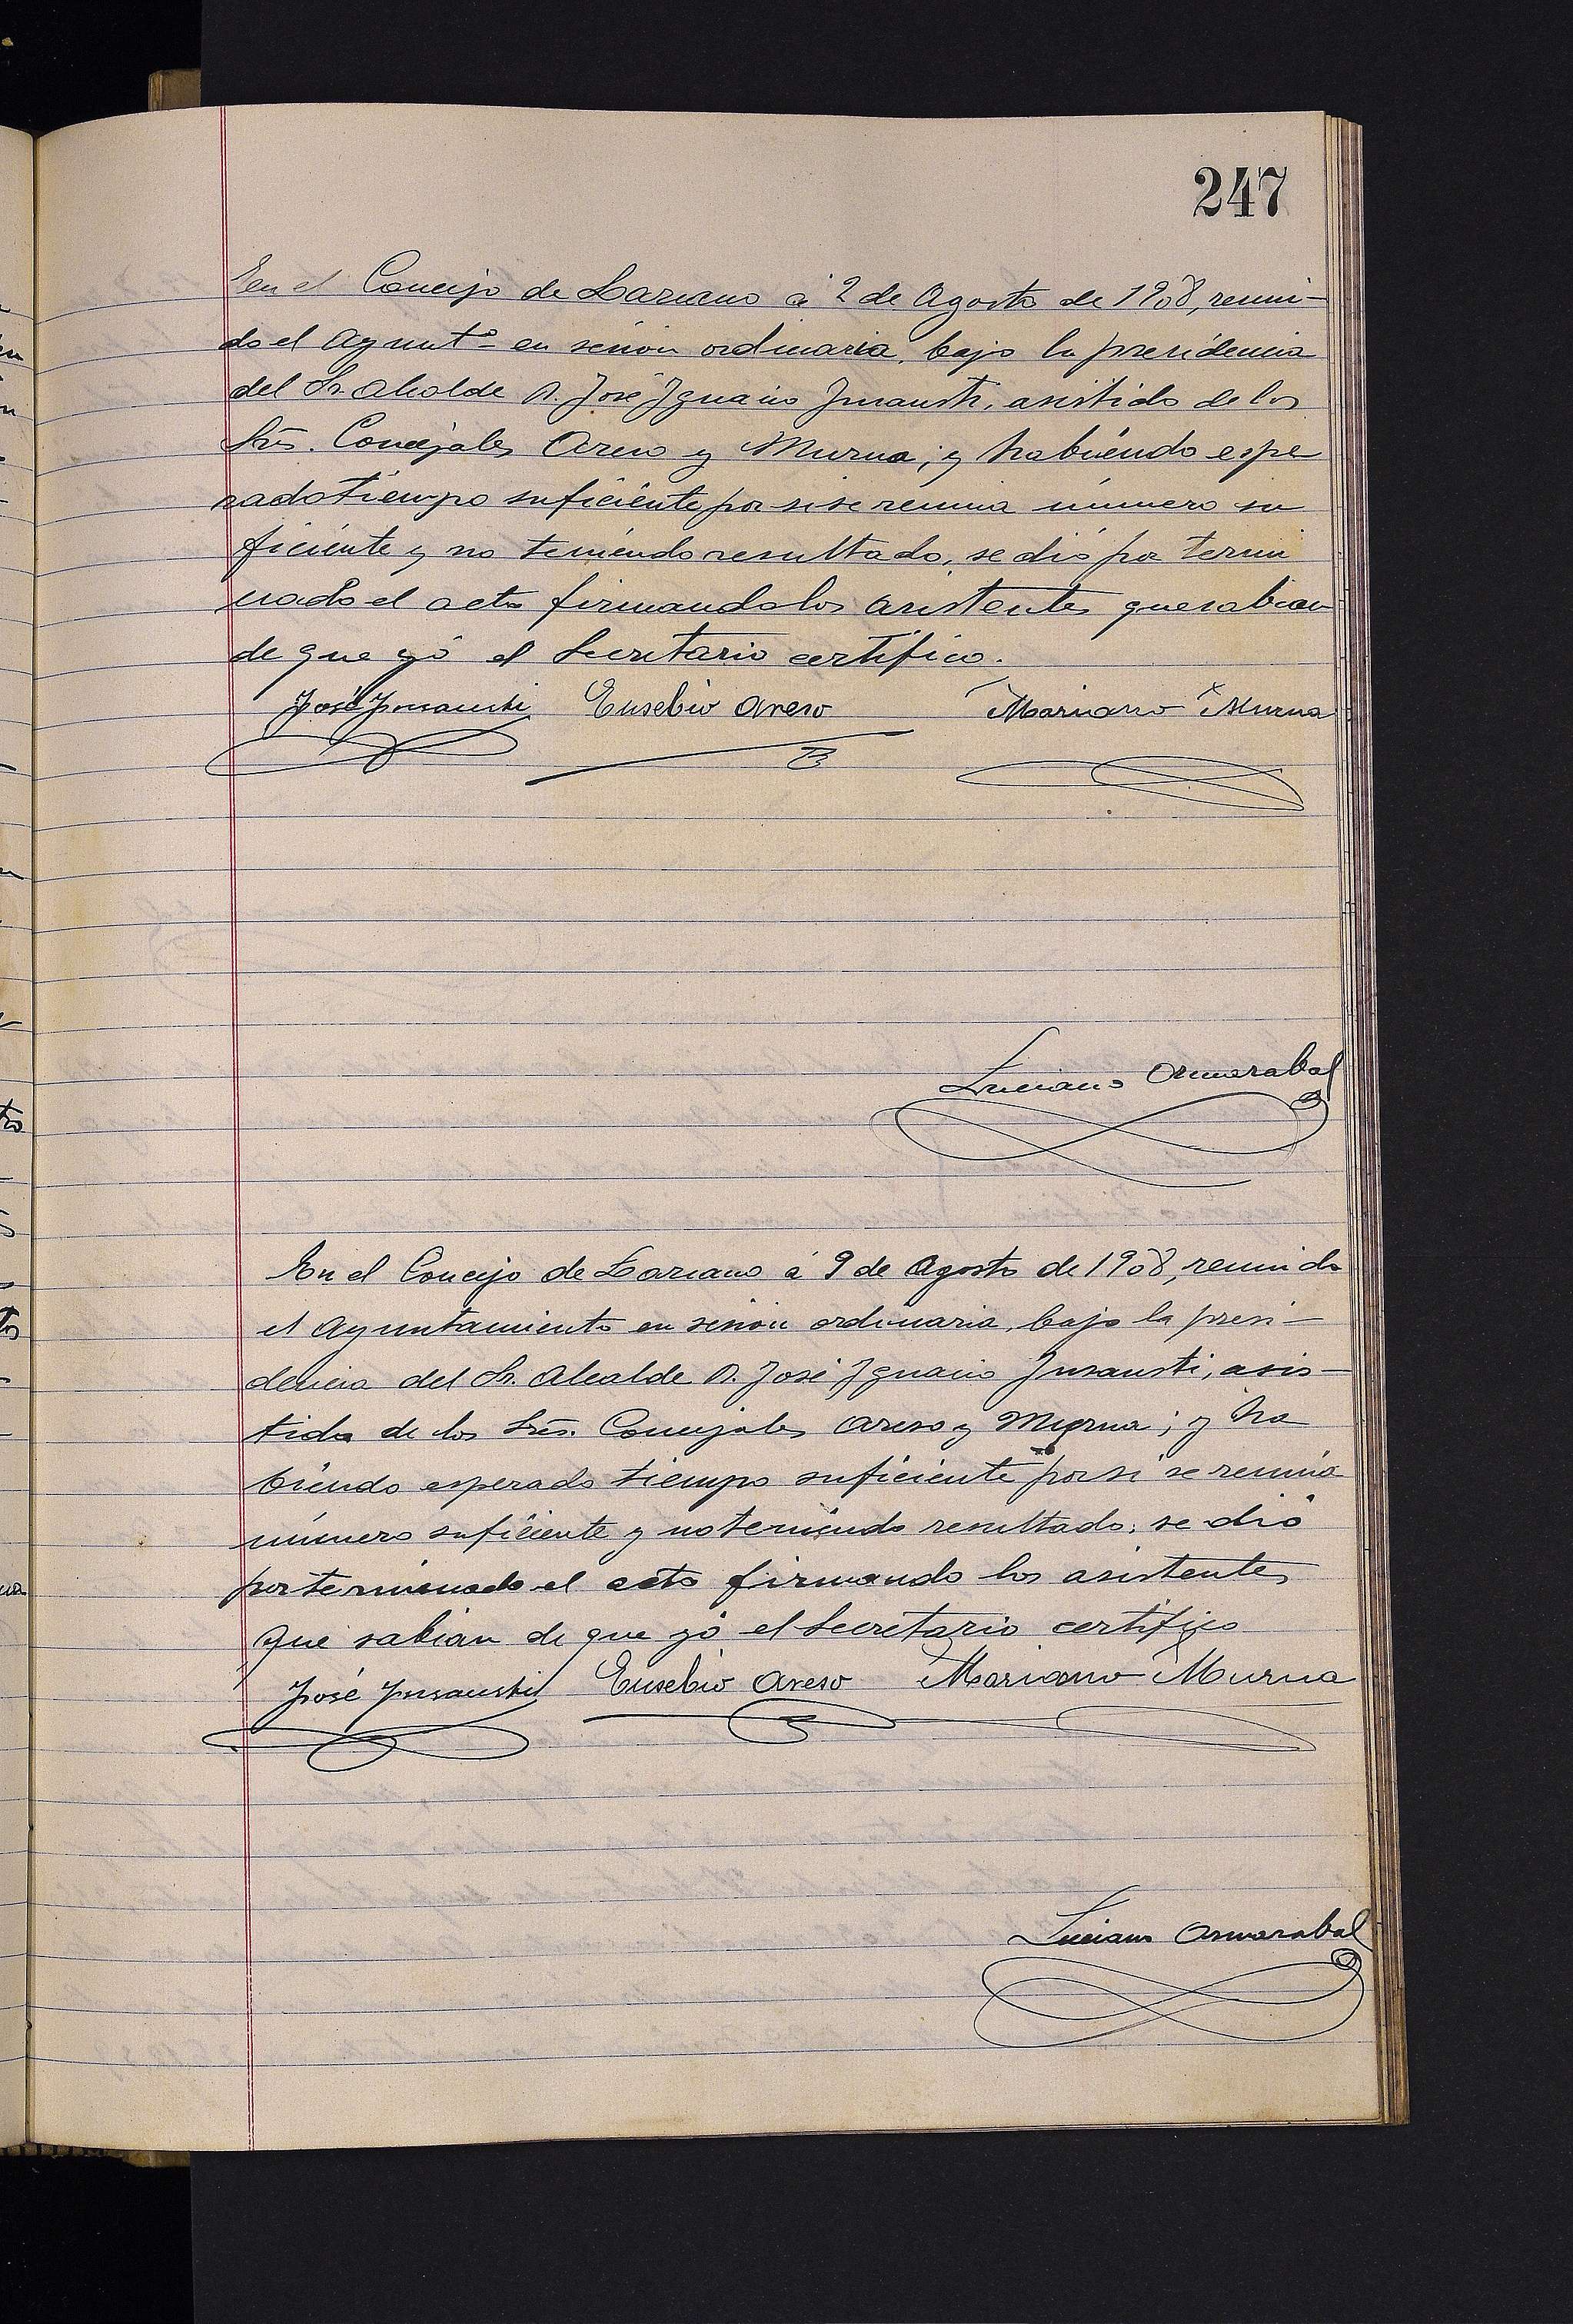 247
En el Concejo de Lazcano á 2 de Agosto de 1908, reuni-
do el Ayuntº en sesion ordinaria, bajo la presidencia
del Sr. Alcalde D. José Ignacio Insausti, asistido de los
Srs. Concejales Areso y Murua; y habiendo espe
rado tiempo suficiente por si se reunia número su
ficiente y no teniendo resultado, se dió por termi
nado el acto firmando los asistentes que sabian
de que yó el Secretario certifico.
José Insausti Eusebio Areso Mariano Murua
Luciano Ormazabal
En el Concejo de Lazcano á 9 de Agosto de 1908, reunido
el Ayuntamiento en sesion ordinaria, bajo la presi-
dencia del Sr. Alcalde D. José Ignacio Insausti, asis-
tido de los Srs. Concejales Areso y Murua; y ha
biendo esperado tiempo suficiente por si se reunia
número suficiente y no teniendo resultado; se dió
por terminado el acto firmando los asistentes
que sabian de que yó el Secretario certifico
José Insausti Eusebio Areso Mariano Murua
Luciano Ormazabal